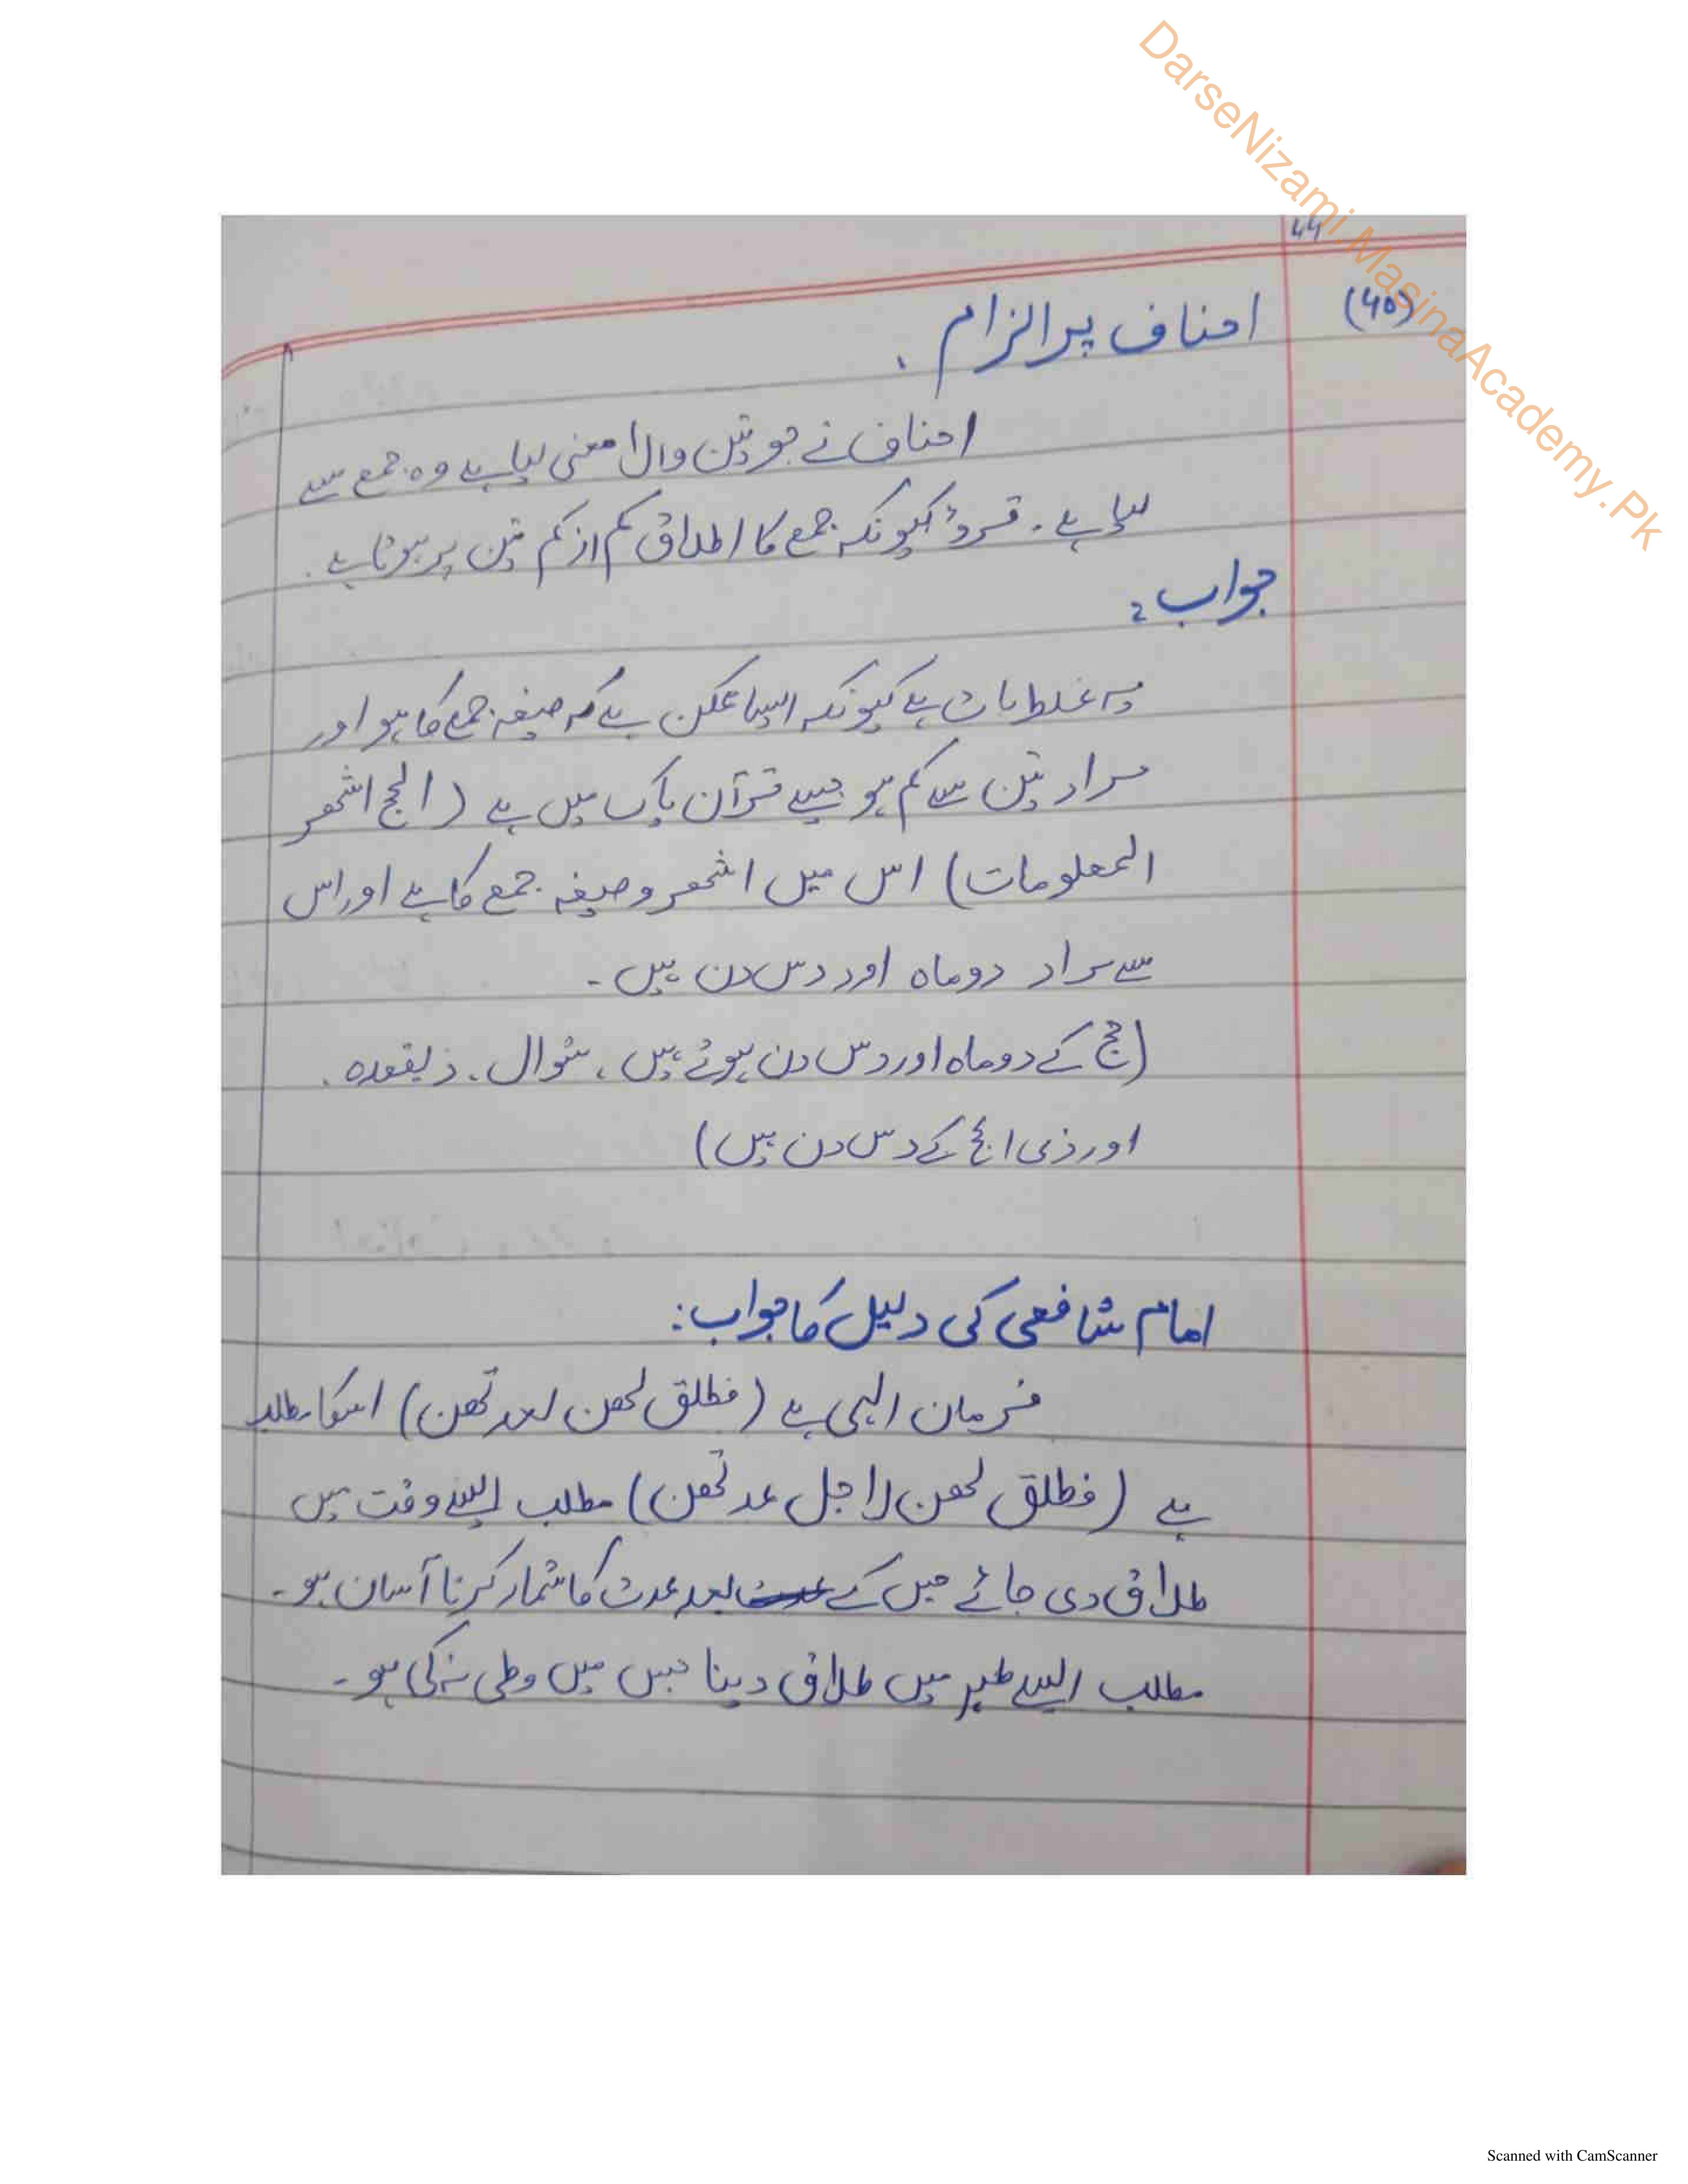 DarseNizami.MasinaAcademy.Pk
44
(40)
احناف پر الزام .
احناف نے جو تین والا معنی لیا ہے وہ جمع سے
لیا ہے ۔ قروء کیونکہ جمع کا اطلاق کم از کم تین پر ہوتا ہے .
جواب :
یہ غلط بات ہے کیونکہ ایسا ممکن ہے کہ صیغہ جمع کا ہو اور
مراد تین سے کم ہو جیسے قرآن پاک میں ہے (الحج اشھر
المعلومات) اس میں اشھر و صیغہ جمع کا ہے اور اس
سے مراد دو ماہ اور دس دن ہیں ۔
(حج کے دو ماہ اور دس دن ہوتے ہیں ، شوال ، ذیقعدہ ،
اور ذی الحج کے دس دن ہیں)
امام شافعی کی دلیل کا جواب :
فرمان الہی ہے (فطلق لھن لعدتھن) اسکا مطلب
ہے (فطلق لھن لاجل عدتھن) مطلب ایسے وقت میں
طلاق دی جائے جس کے بعد عدت کا شمار کرنا آسان ہو ۔
مطلب ایسے طہر میں طلاق دینا جس میں وطی نہ کی ہو ۔
Scanned with CamScanner